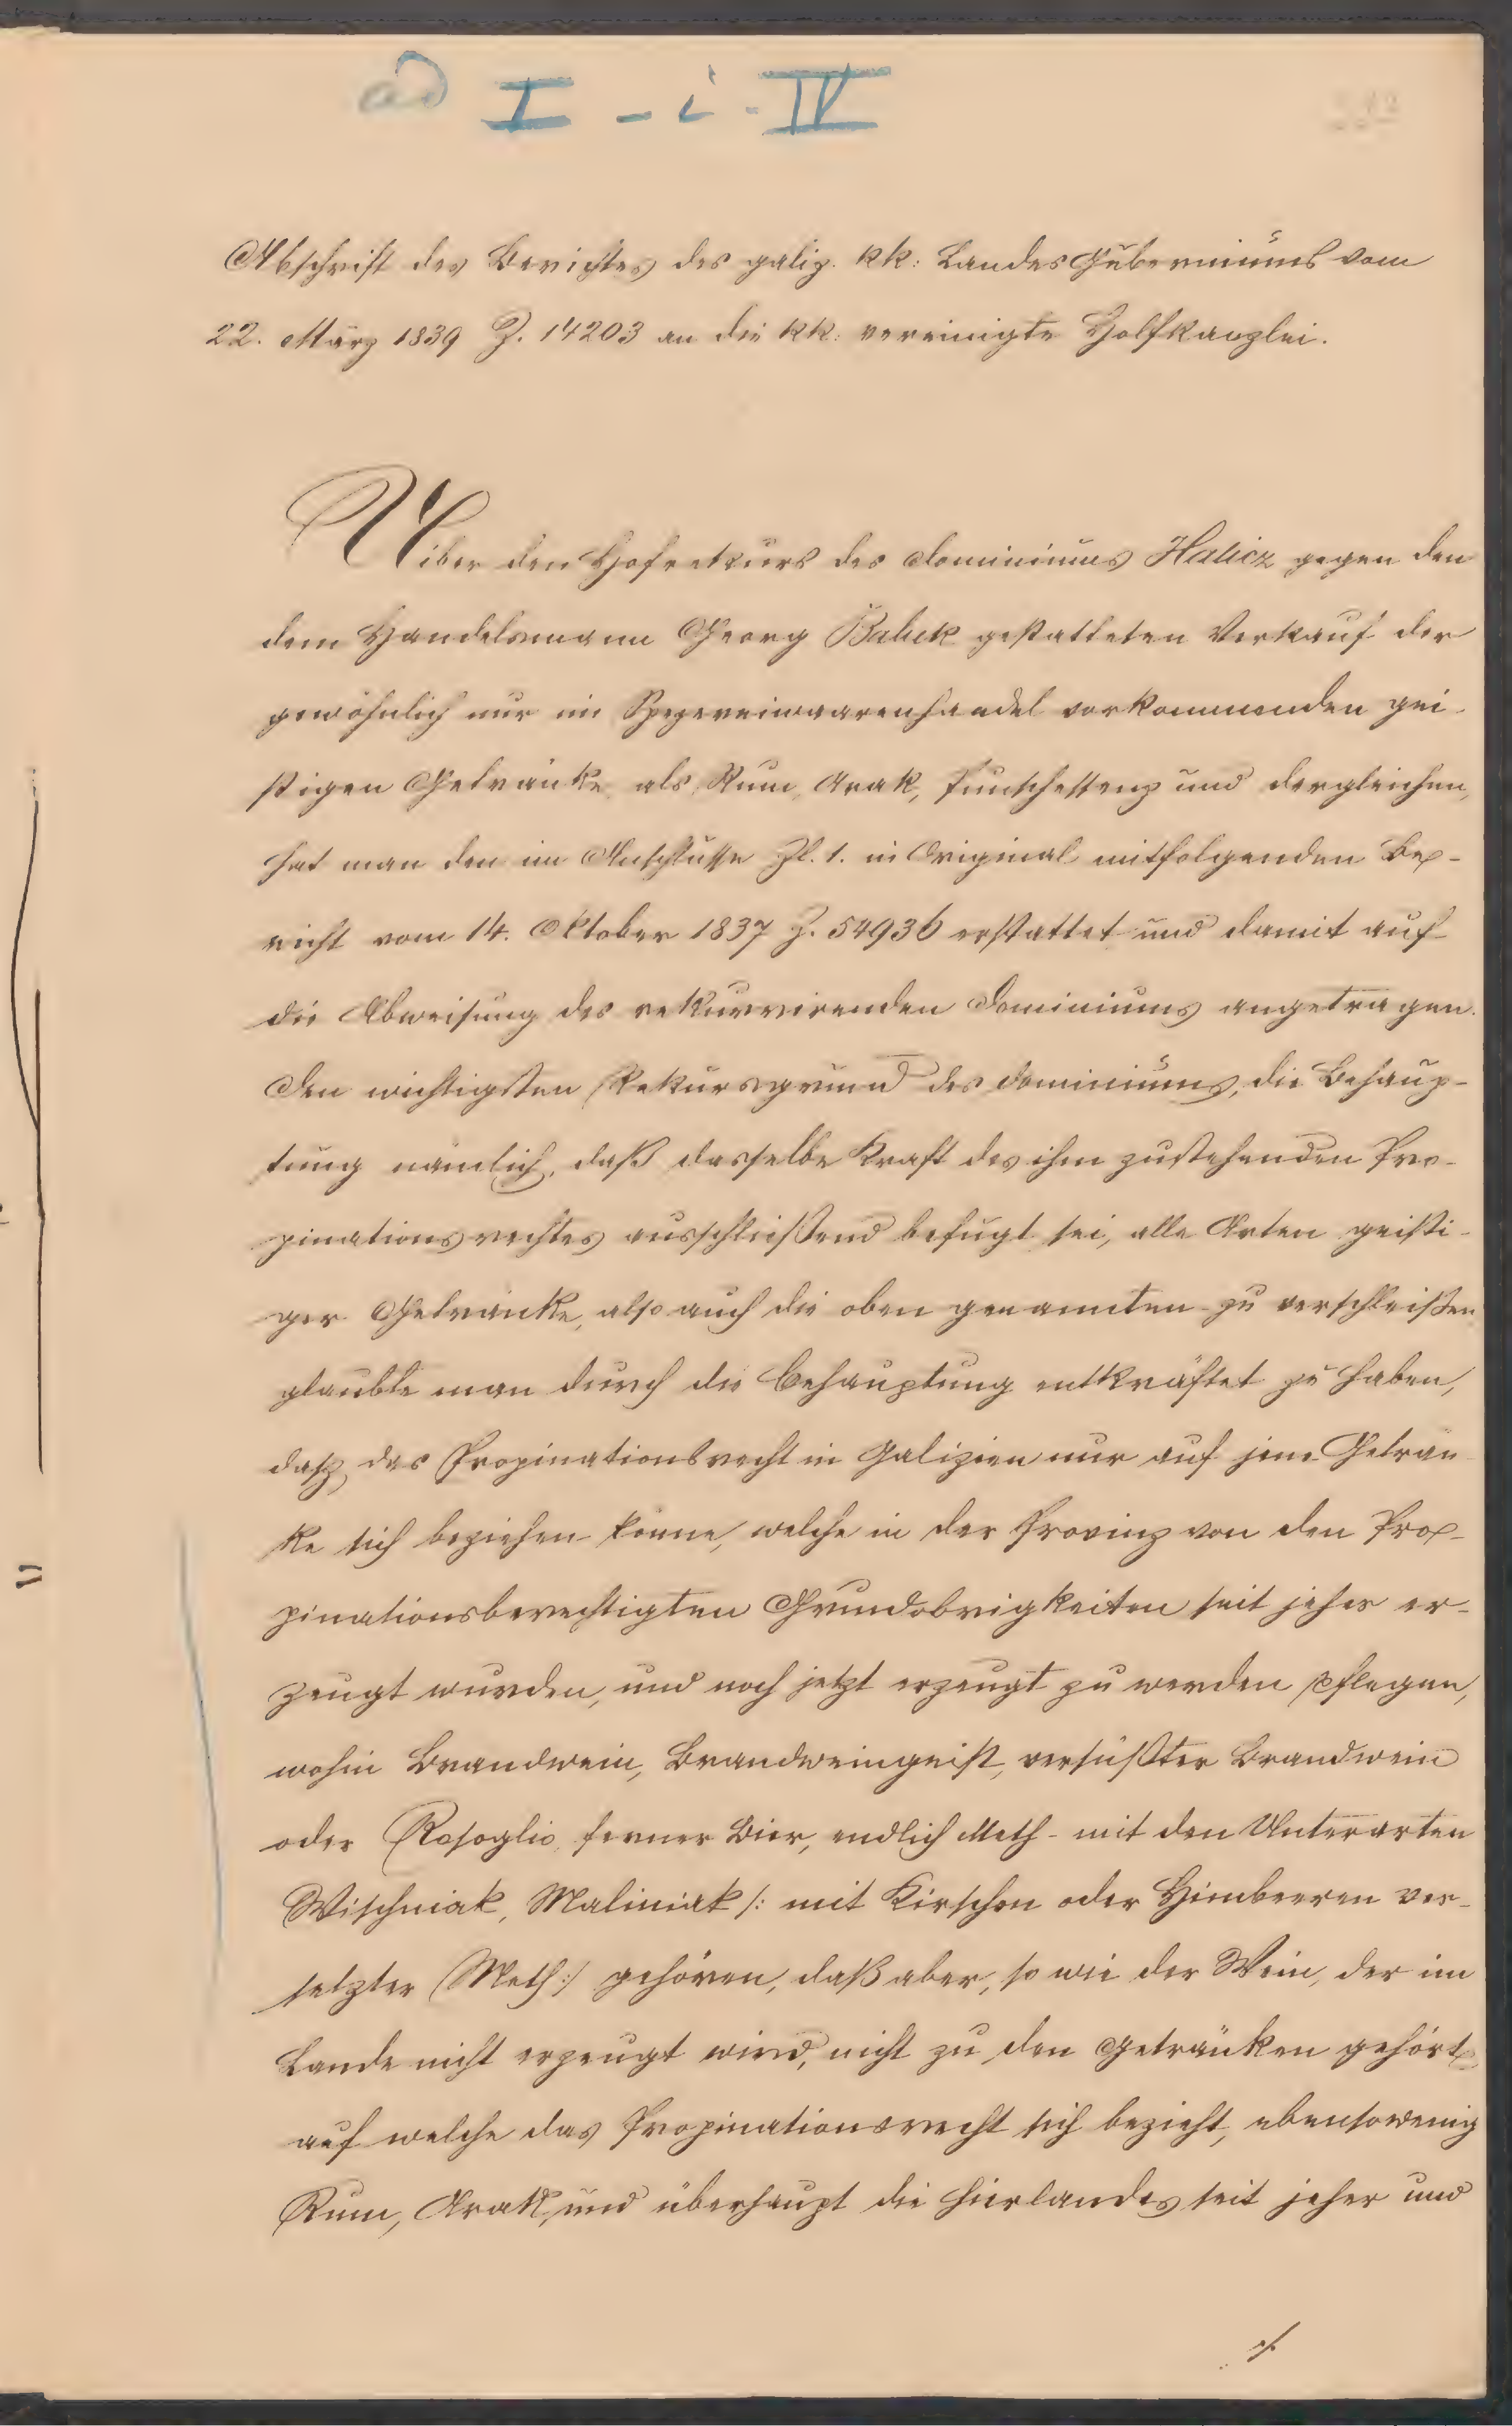 ad I - i - IV
Abschrift des Berichtes des galiz. kk: Landes Guberniums vom
22. März 1839 Z. 14203 an die kk: vereinigte Hofkanzlei.
Uiber den Hofrekurs des Dominiums Halicz gegen den
dem Handelsmann Georg Babek gestatteten Verkauf der
gewöhnlich nur im Spezereiwaarenhandel vorkommenden gei-
stigen Getränke, als Rum, Arak, Punschessenz und dergleichen,
hat man den im Anschlusse Zl. 1. in Original mitfolgenden Be-
richt vom 14. Oktober 1837 Z. 54936 erstattet und damit auf
die Abweisung des rekurrirenden Dominiums angetragen.
Den wichtigsten Rekursgrund des Dominiums, die Behaup-
tung nämlich, daß dasselbe Kraft des ihm zustehenden Pro-
pinationsrechtes ausschließend befugt sei, alle Arten geisti-
ger Getränke, also auch die oben genannten zu verschleißen
glaubte man durch die Behauptung entkräftet zu haben,
dasz das Propinationsrecht in Galizien nur auf jene Geträn-
ke sich beziehen könne, welche in der Provinz von den Pro-
pinationsberechtigten Grundobrigkeiten seit jeher er-
zeugt wurden, und noch jetzt erzeugt zu werden pflegen,
wohin Brandwein, Brandweingeist, versüßter Brandwein
oder Rosoglio, ferner Bier, endlich Meth - mit den Unterarten
Wischniak, Maliniak /: mit Kirschen oder Himbeeren ver-
setzter Meth :/ gehören, daß aber, so wie der Wein, der im
Lande nicht erzeugt wird, nicht zu den Getränken gehört,
auf welche das Propinationsrecht sich bezieht, ebensowenig
Rum, Arak, und überhaupt die hierlandes seit jeher und
./.